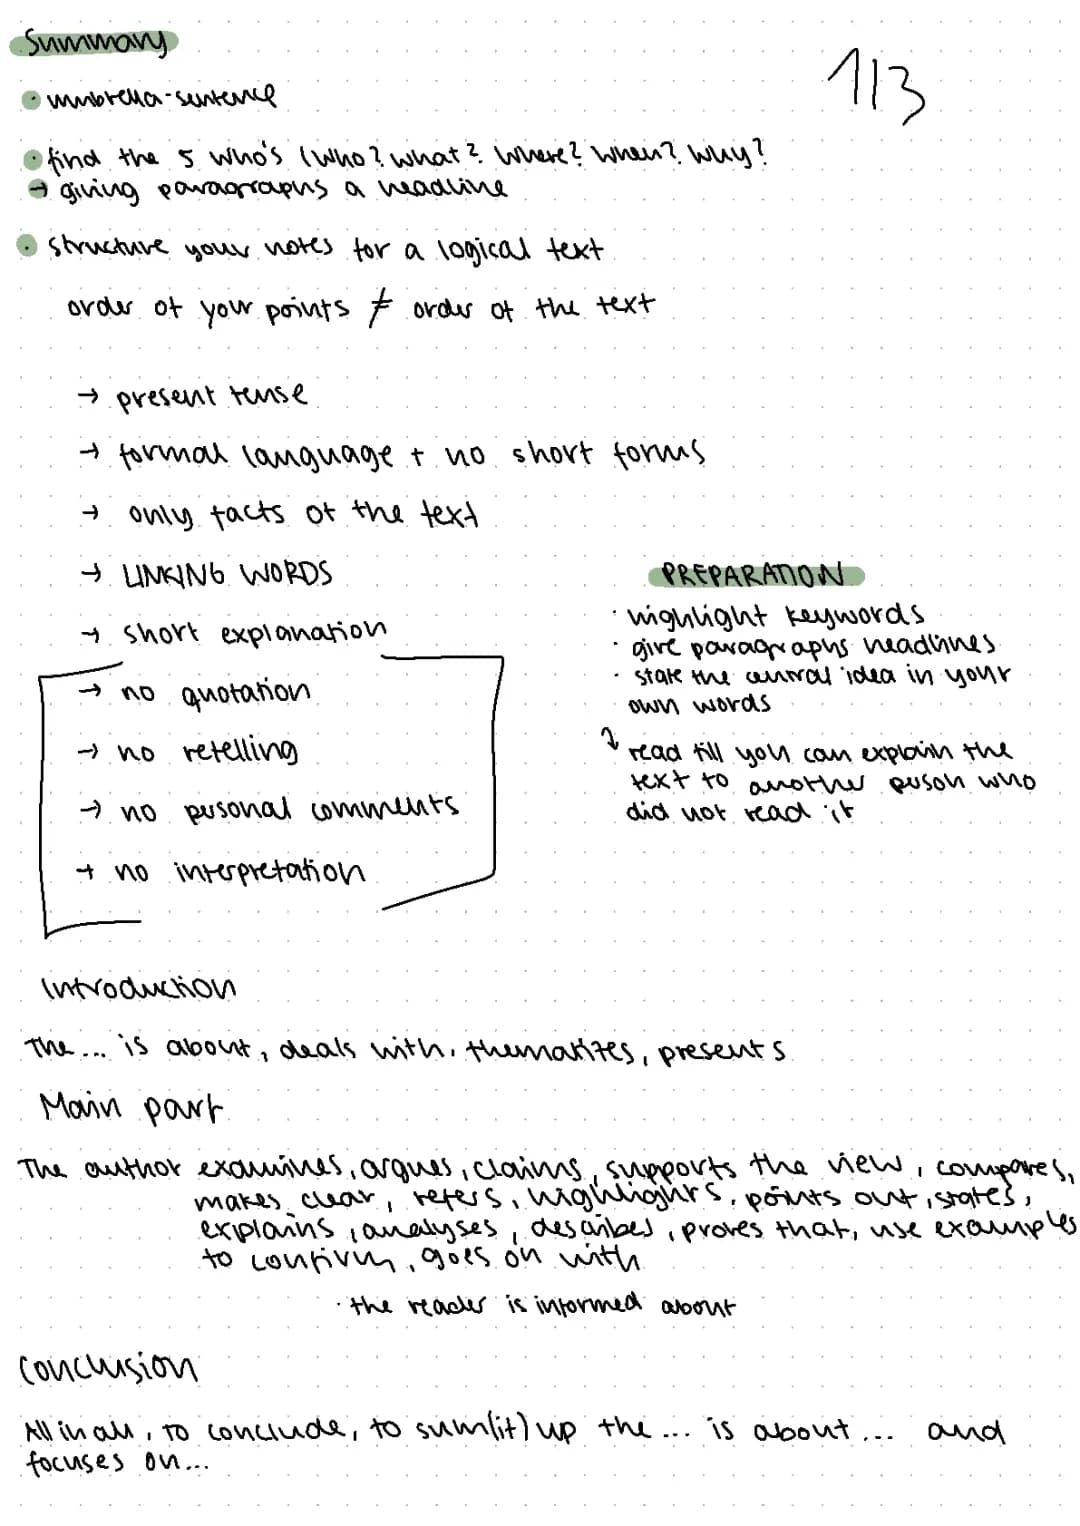 Summary
1/3
• umbrella-sentence
• find the 5 who's (who? what? where? when? why?
→ giving paragraphs a headline
• structure your notes for a logical text
order of your points ≠ order of the text
→ present tense
→ formal language + no short forms
→ only facts of the text
→ LINKING WORDS
→ short explanation
→ no quotation
→ no retelling
→ no personal comments
→ no interpretation
PREPARATION
· highlight keywords
· give paragraphs headlines
· state the central idea in your
own words
↓ read till you can explain the
text to another person who
did not read it
Introduction
The ... is about, deals with, thematizes, presents
Main part
The author examines, argues, claims, supports the view, compares,
makes clear, refers, highlights, points out, states,
explains, analyses, describes, proves that, use examples
to confirm, goes on with
· the reader is informed about
Conclusion
All in all, to conclude, to sum(it) up the ... is about ... and
focuses on...